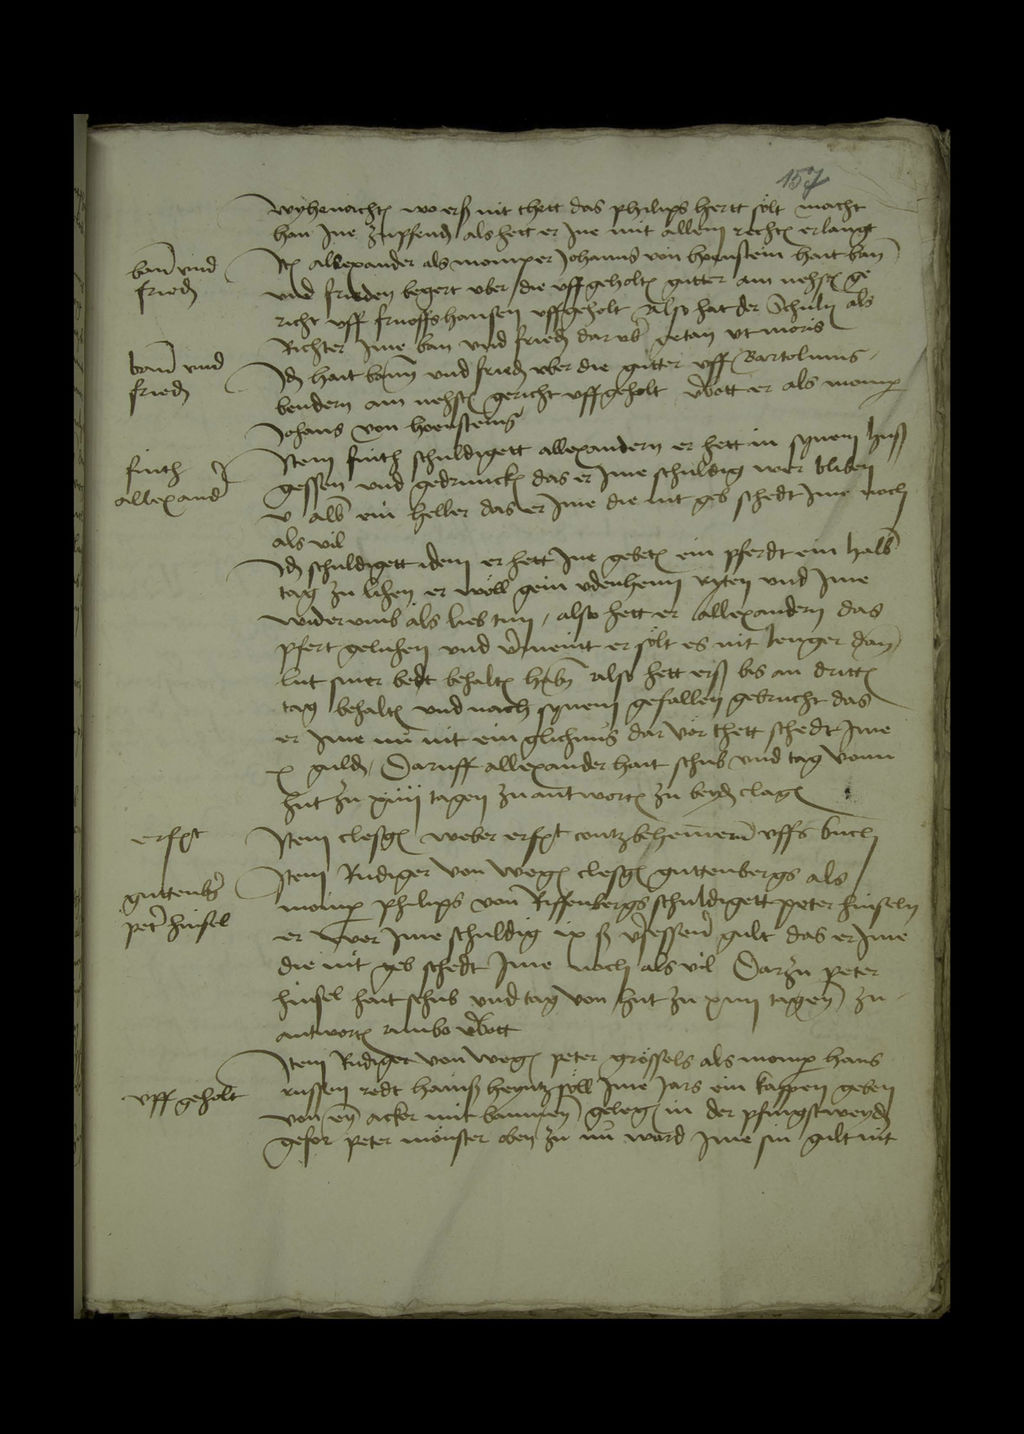 157
wyhenachten wo erß nit thett das philips hertt solt macht
han Ine zupfenden als hett er Ine mit allem rechten erlangt
ban und frieden
Item allexander als momper Johanns von hoenstein hait ban
und frieden begert uber die uffgeholten gutter am nehsten ge
richt uff snoffshansen uffgeholt Also hat der Schultes als
Richter Ime ban und frieden daruber getan ut moris
ban und frieden
Idem hait bann und frieden uber die gutter uff Bartolmus
bendern am nehsten gericht uffgeholt verbott er als momper
Johans von hoensteins
finth
allexander
Item finth schuldigett allexandern er hett in synem huß
gessen und gedruncken das er Ime schuldig wer bliben
v alb ein heller das er Ime die nit geb schedt Ine noch
als vil
Idem schuldigett idem er hett Ine gebeten ein pferdt ein halb
tag zu lihen er woll gein udenheim ryten und Ime
widerumb als lieb tun / also hett er allexandern das
pfert geluhen und vermeint er solt es nit lenger dan
lut siner bedt behalten haben also hett erß bis an dritten
tag behalten und nach synem gefallen gebrucht das
er Ime nu nit ein glichnus dar vor thett schedt Ine
x gulden / Daruff allexander hait schub und tag vonn
hut zu xiiii tagen zu antworten zu beyden clagen
erfxt
Item clesgen weber erfxt contz behemern uffs buch
guttenberg
peter hinsel
Item Rudiger von wegen clesgen guttenbergs als
momper philips von Riffenbergs schuldigett peter hinseln
er wer Ime schuldig ix ß versessener gult das er Ime
die nit geb schedt Ine noch als vil Darzu peter
hinsel hait schub und tag von hut zu xiiii tagen zu
antworten ambo verbott
uff geholt
Item Rudiger von wegen peter grossels als momper hans
russen redt hainß heyntz soll Ime Jars ein kappen geben
von eym acker mit baumen gelegen in der pfingstweyden
gefor peter monster oben zu nu ward Ime sin gult nit